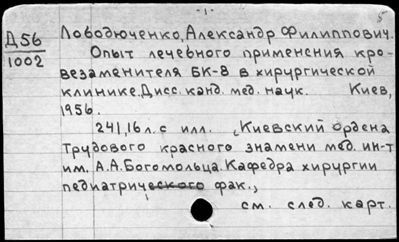 -1-
5
Д56
1002
Ловодюченко, Александр Филиппович.
Опыт лечебного применения кро-
везаменителя БК-8 в хирургической
клинике. Дисс. канд. мед. наук. Киев,
1956.
241, 16 л. с илл. (Киевский ордена
трудового красного знамени мед. ин-т
им. А.А. Богомольца. Кафедра хирургии
педиатрического фак.,
см. след. карт.